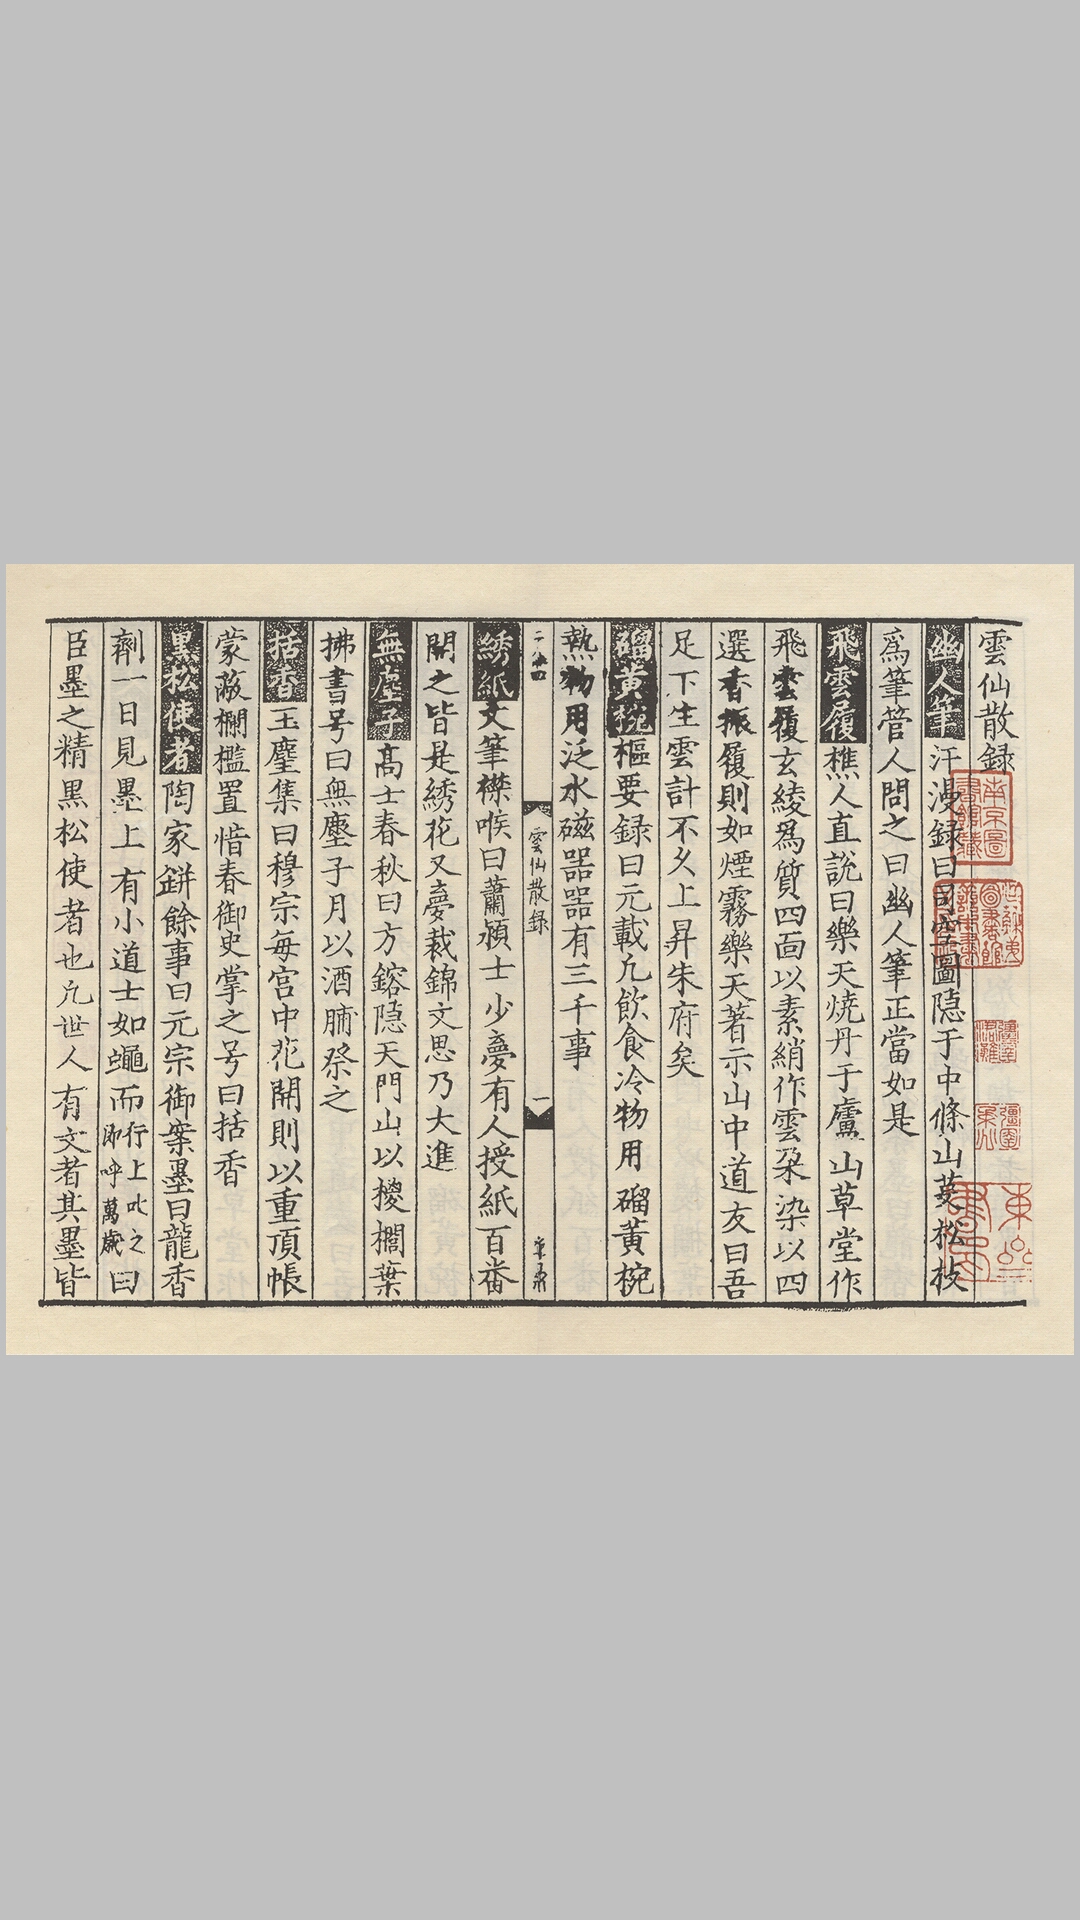 雲仙散録
幽人筆汗漫録曰司空圖隱于中條山芟松枝
爲筆管人問之曰幽人筆正當如是
飛雲履樵人直說曰樂天燒丹于廬山草堂作
飛雲履玄綾爲質四面以素綃作雲朶染以四
選香振履則如煙霧樂天著示山中道友曰吾
足下生雲計不久上昇朱府矣
磂黃椀樞要録曰元載凢飲食冷物用磂黃椀
熱物用泛水磁器器有三千事
雲仙散録 一
綉紙文筆襟喉曰蕭潁士少夢有人授紙百番
開之皆是綉花又夢裁錦文思乃大進
無塵子髙士春秋曰方鎔隱天門山以椶櫚葉
拂書号曰無塵子月以酒脯祭之
括香玉麈集曰穆宗每宮中花開則以重頂帳
蒙蔽欄檻置惜春御史掌之号曰括香
黒松使者陶家缾餘事曰元宗御案墨曰龍香
劑一日見墨上有小道士如蠅而行上叱之即呼萬歲曰
臣墨之精黒松使者也凢世人有文者其墨皆
南京圖書館藏